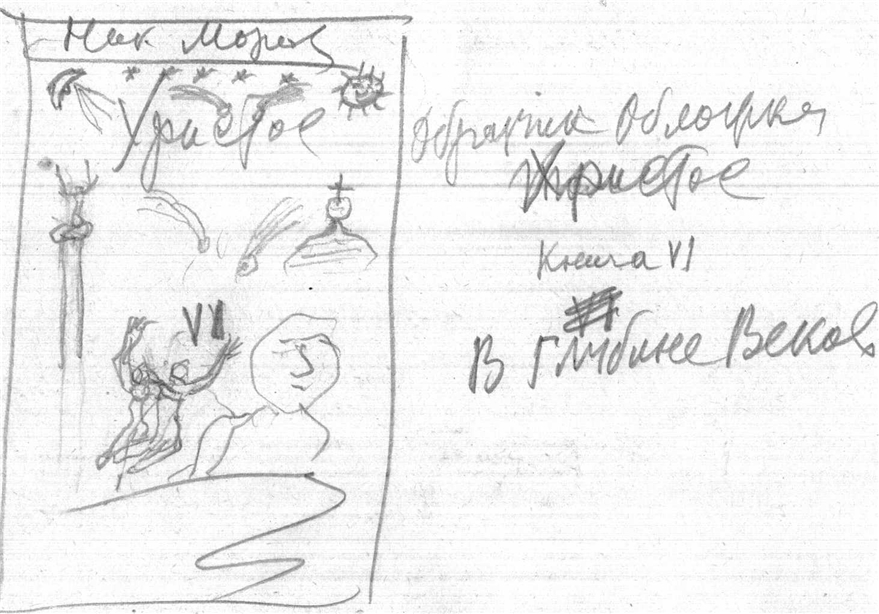 Ник
Христос
VI
Образчик Обложки
Христос
Книга VI
В Глубине Веков